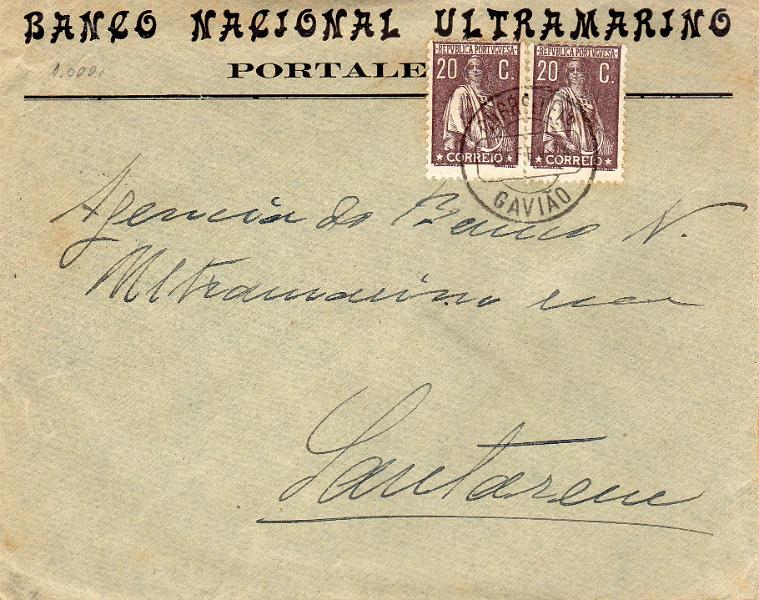 BANCO NACIONAL ULTRAMARINO
1.000
PORTALE
REPUBLICA PORTUGUESA
20 C.
CORREIO
REPUBLICA PORTUGUESA
20 C.
CORREIO
GAVIÃO
Agencia do Banco N.
Ultramarino em
Santarem